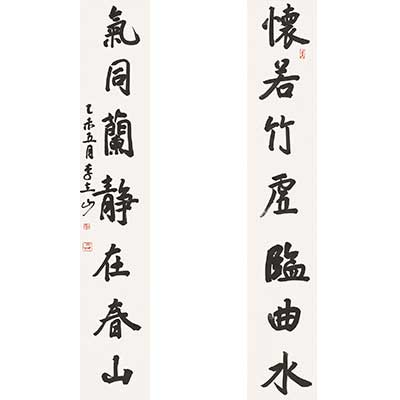 懷若竹虛臨曲水
氣同蘭靜在春山
乙未五月李立山